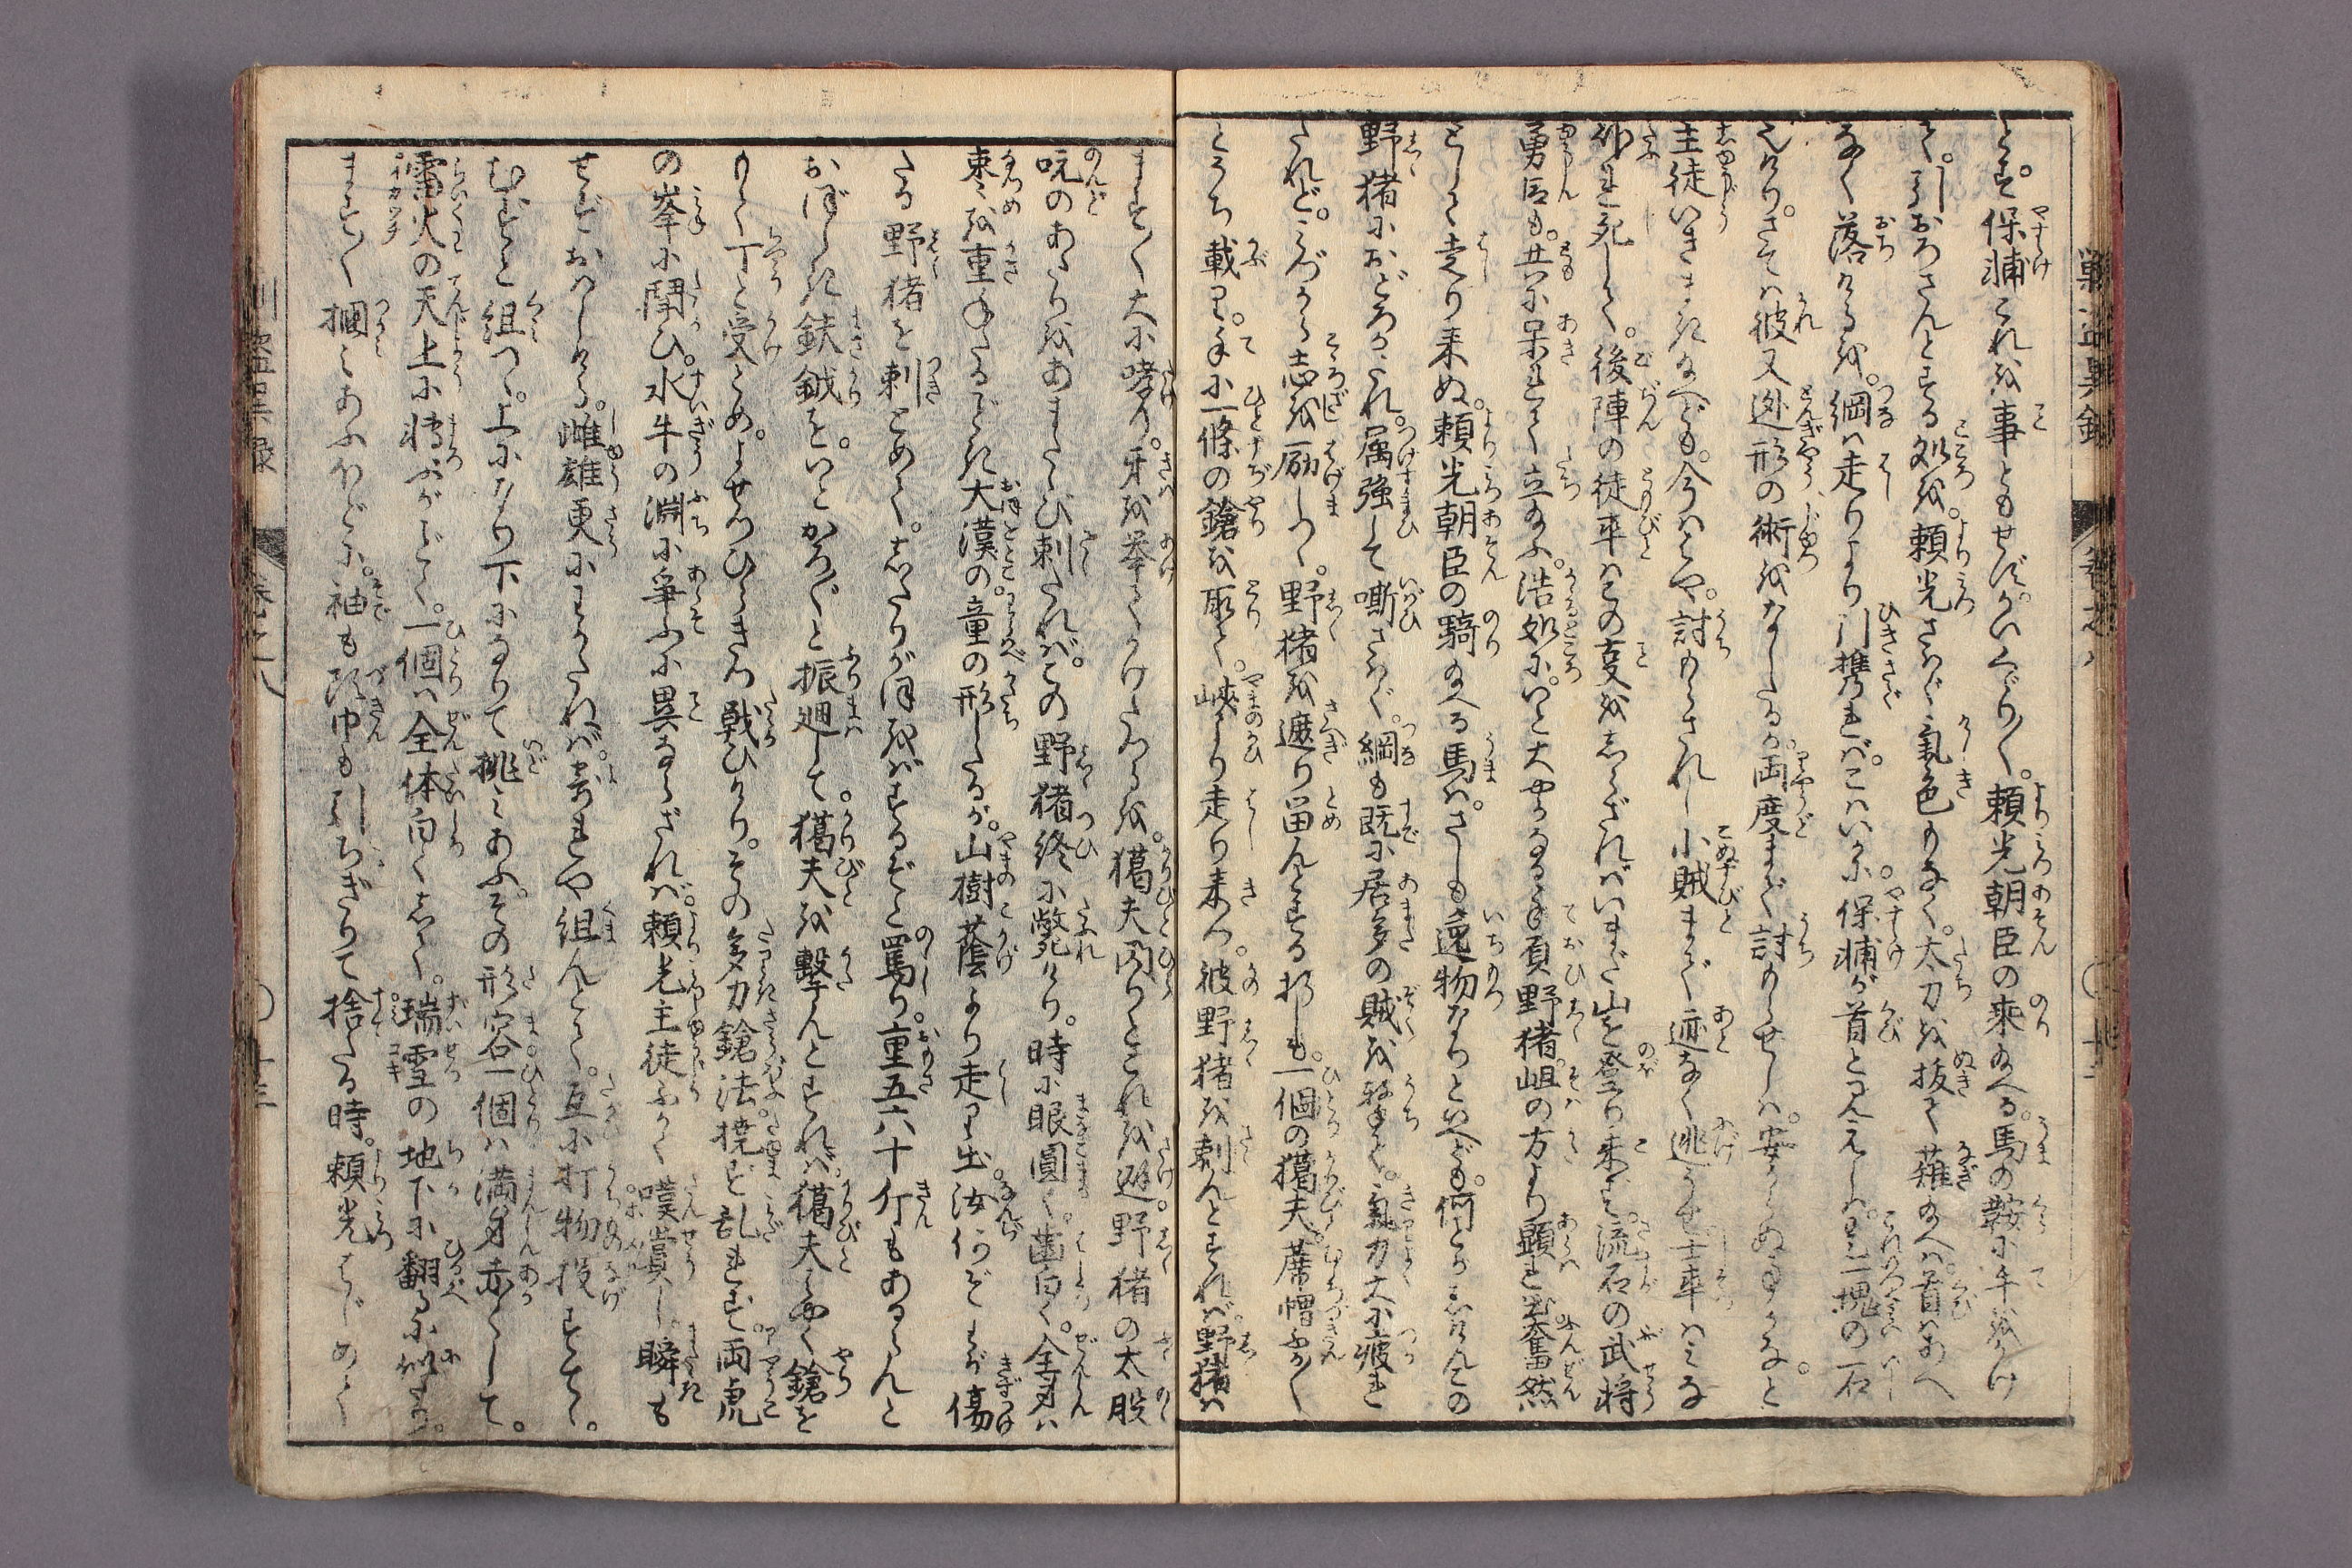 とす。保浦これを事ともせず。かいくゞり〳〵。頼光朝臣の乗給へる。馬の鞍に手をかけ
て。引おろさんとする処を。頼光さわぐ気色もなく。太刀を抜て薙給へば。首はあへ
なく落けるを。綱は走りより引携れば。こはいかに。保浦が首と見えしは。一塊の石
也けり。さては彼又遁形の術をなしたるか。両度まで討もらせしは。安からぬ事かなと
主徒いきまき給へども。今はとや。討もらされし小賊まで迹なく逃うせ。士卒はみな
仆れ死して。後陣の徒卒はこの事をしらざればいまだ山を登り来ず。流石の武将
勇臣も。共に呆れて立給ふ。浩処に。いと大やかなる手負野猪。岨の方より顕れ出。奮然
として走り来ぬ。頼光朝臣の騎給へる馬は。さしも逸物なりといへども。何とかしけんこの
野猪におどろかされ。属強して嘶さわぐ。綱も既に居多の賊を撃て。気力大に疲れ
たれど。みづから志を励しつゝ。野猪を遮り留んとする折しも。一個の獦夫。蓆帽ふか〴〵
とうち載き。手に一條の鎗を取て。峽より走り来つ。彼野猪を刺んとすれば。野猪は
ます〳〵大に哮り。牙を挙てかけたつるを。獦夫閃りとこれを避。野猪の太股
吭のあたりをあまたゝび刺たれば。この野猪終に斃けり。時に眼圓く。歯白く。全身は
束ねを重ねたるごとき大漢の。童の形したるが。山樹蔭より走り出。汝何ぞわが傷
たる野猪を刺とめて。したりがほをばするぞと罵り。重五六十斤もあらんと
おぼしき鈇鉞を。いとかろ〴〵と振廻して。獦夫を撃んとすれば。獦夫はやく鎗を
もて丁と受とめ。よせつひらきつ戦ひけり。その多力鎗法撓まず乱れず。両虎
の峯に鬩ひ。水牛の淵に争ふに異ならざれば。頼光主徒ふかく嘆賞し。瞬も
せずおはしける。雌雄更にわかたねば。寄れや組んとて。互に打物投すてゝ。
むずと組つゝ。上になり下になりて挑みあふ。その形容一個は満身赤くして。
雷火の天上に轉ぶがごとく。一個は全体白くして。瑞雪の地下に翻るに似たり。
ます〳〵摑みあふほどに。袖も頭巾も引ちぎりて捨たる時。頼光はじめて